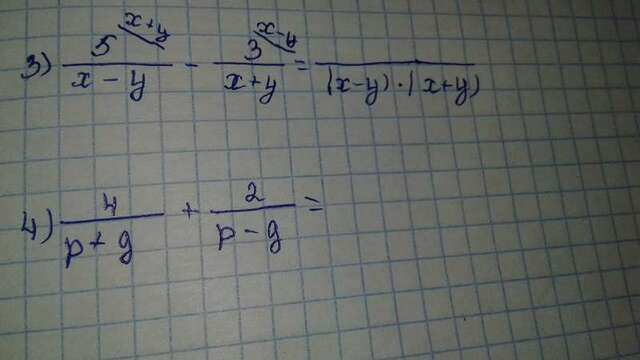 3) 5 x+y / x - y - 3 x-y / x+y = / (x-y)·(x+y)
4) 4 / p + g + 2 / p - g =